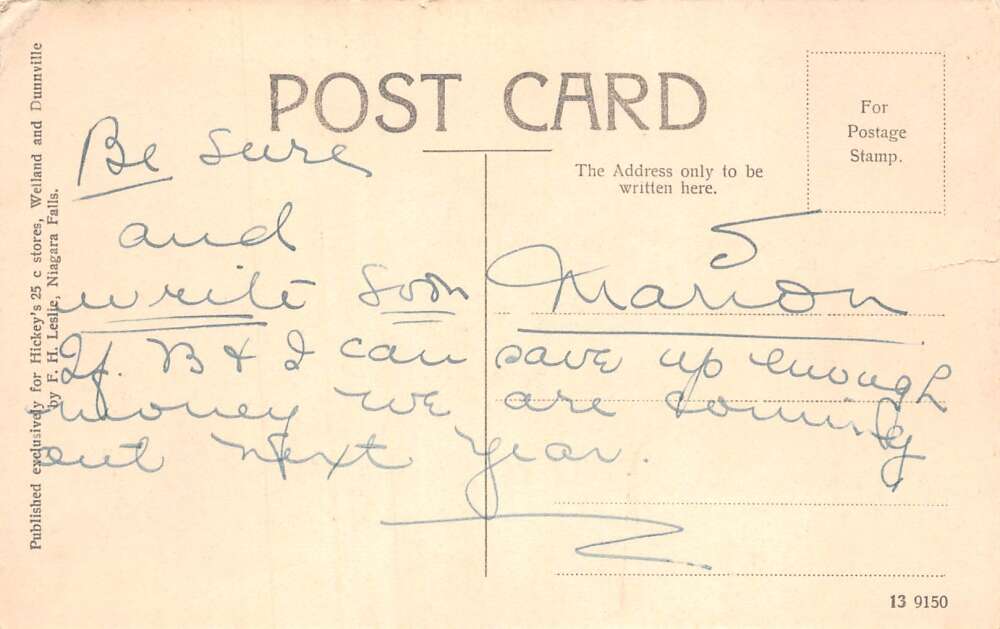 POST CARD
For
Postage
Stamp.
The Address only to be
written here.
Published exclusively for Hickey's 25 c stores, Welland and Dunnville
by F. H. Leslie, Niagara Falls.
Be sure
and
write soon
5
Marion
If. B & I can save up enough
money we are coming
out next year.
13 9150